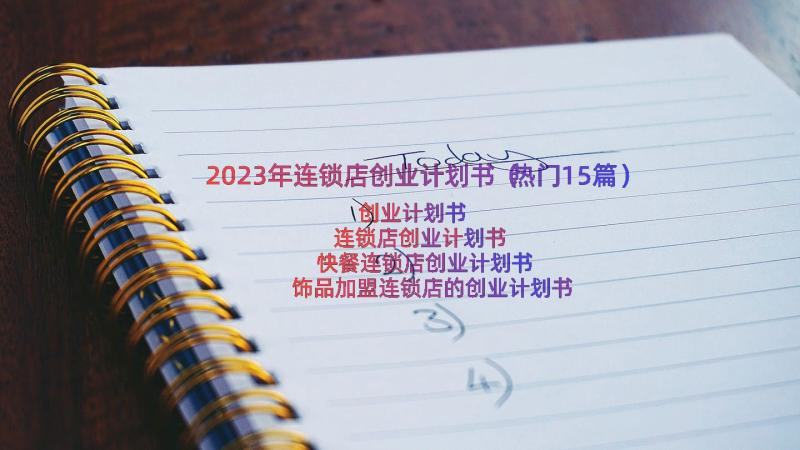 Today
2023年连锁店创业计划书（热门15篇）
1)
创业计划书
连锁店创业计划书
2)
快餐连锁店创业计划书
饰品加盟连锁店的创业计划书
3)
4)